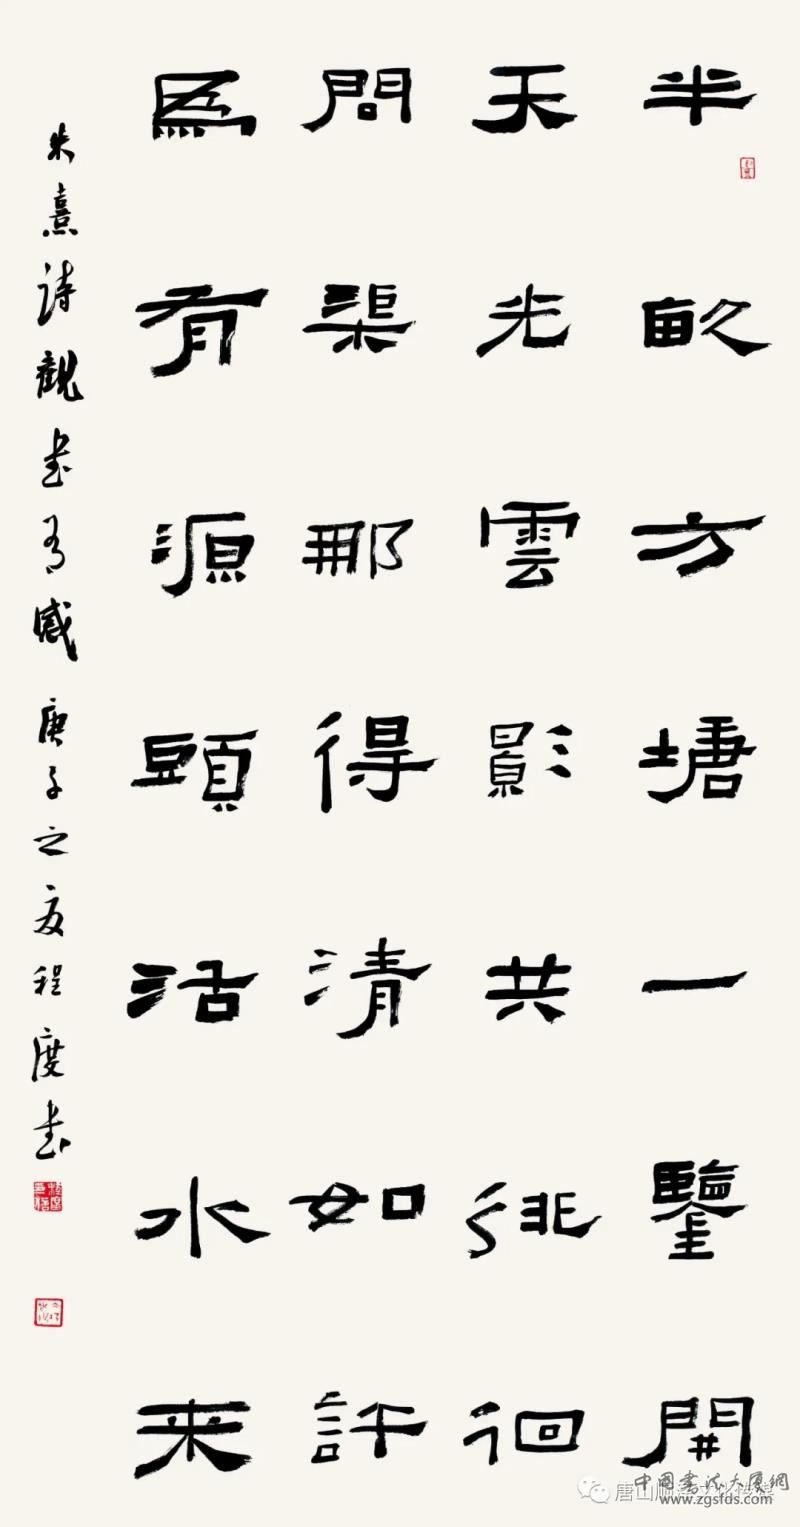 半畝方塘一鑒開
天光雲影共徘徊
問渠那得清如許
爲有源頭活水来
朱熹詩觀书有感庚子之夏程度书
唐山
中国书法大厦網
www.zgsfds.com